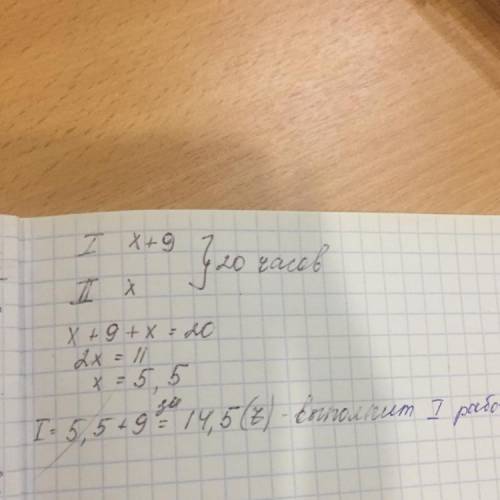 I x+9
} 20 часов
II x
x+9+x=20
2x=11
x=5,5
за
I=5,5+9=14,5(ч)-выполнит I рабо